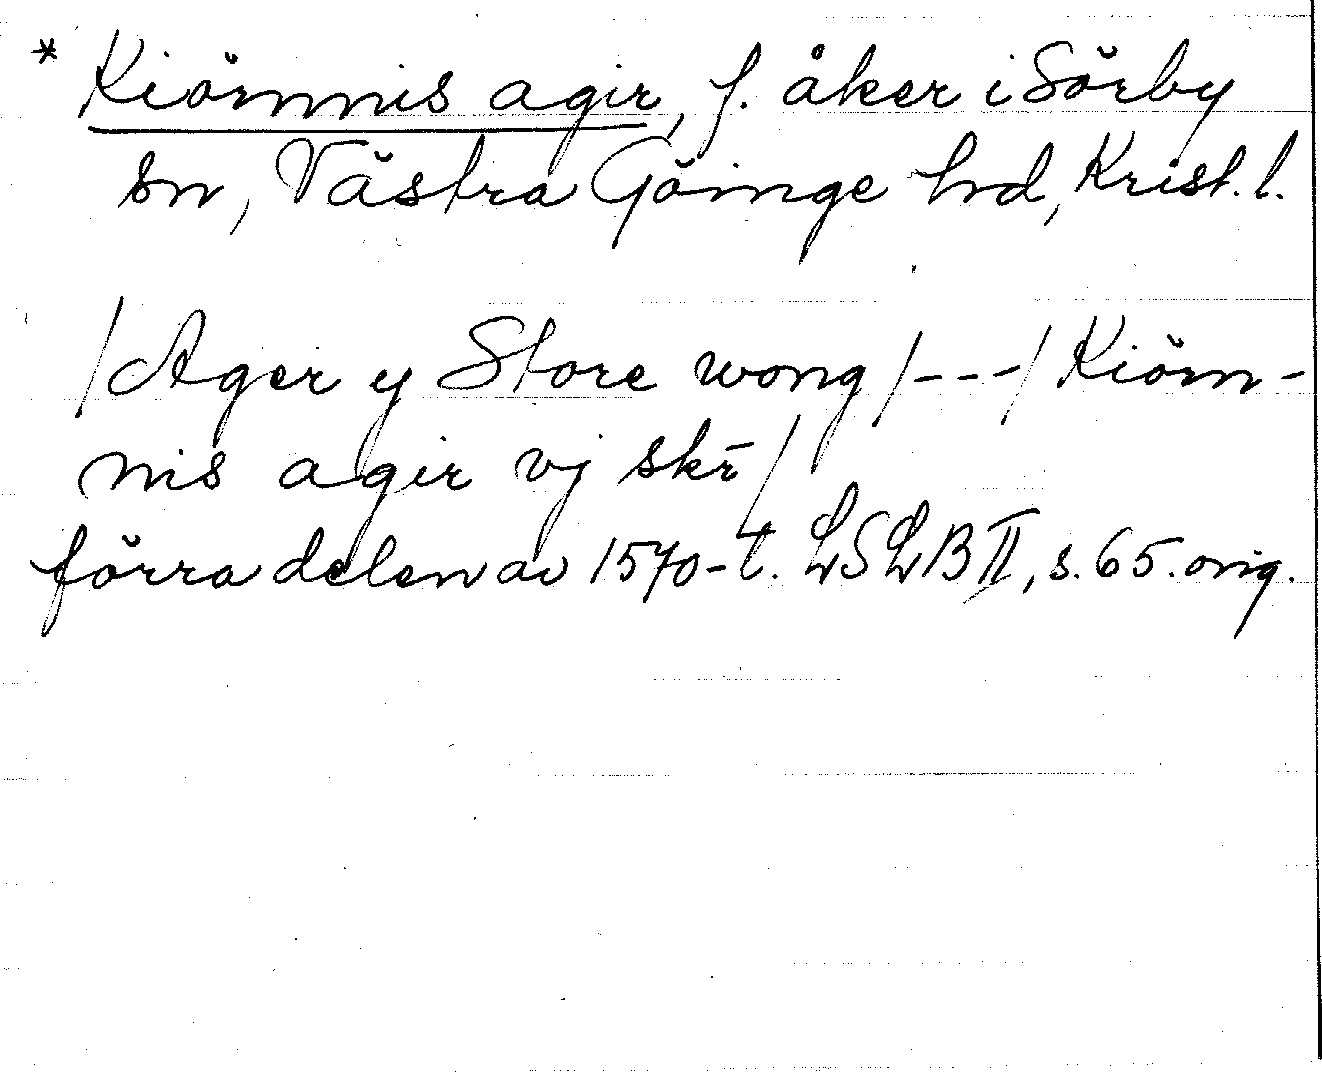 * Kiömmis agir, f. åker i Sörby
sn, Västra Göinge hd, Krist. l.
/Ager y Store wong/---/Kiöm-
nis agir vj skr̄/
förra delen av 1570-t. LSLB II, s. 65. orig.